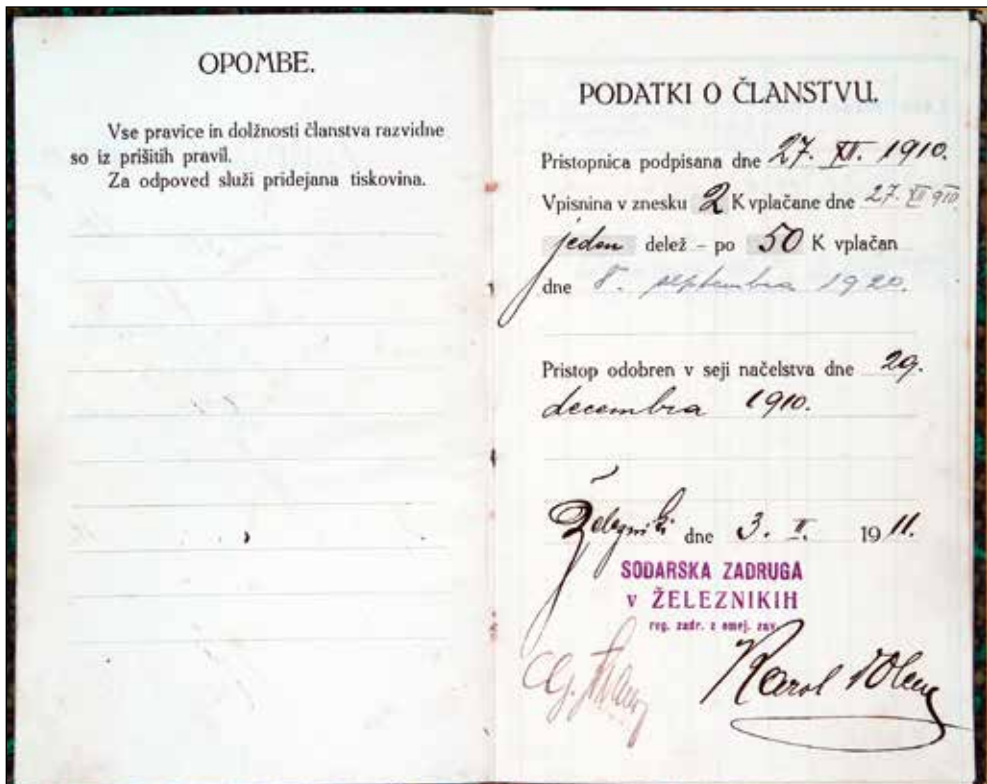 OPOMBE.
Vse pravice in dolžnosti članstva razvidne
so iz prišitih pravil.
Za odpoved služi pridejana tiskovina.
PODATKI O ČLANSTVU.
Pristopnica podpisana dne 27. XII. 1910.
Vpisnina v znesku 2 K vplačane dne 27. XII 910.
jeden delež - po 50 K vplačan
dne 8. septembra 1920.
Pristop odobren v seji načelstva dne 29.
decembra 1910.
Železniki dne 3. II. 1911.
SODARSKA ZADRUGA
v ŽELEZNIKIH
reg. zadr. z omej. zav.
Karol